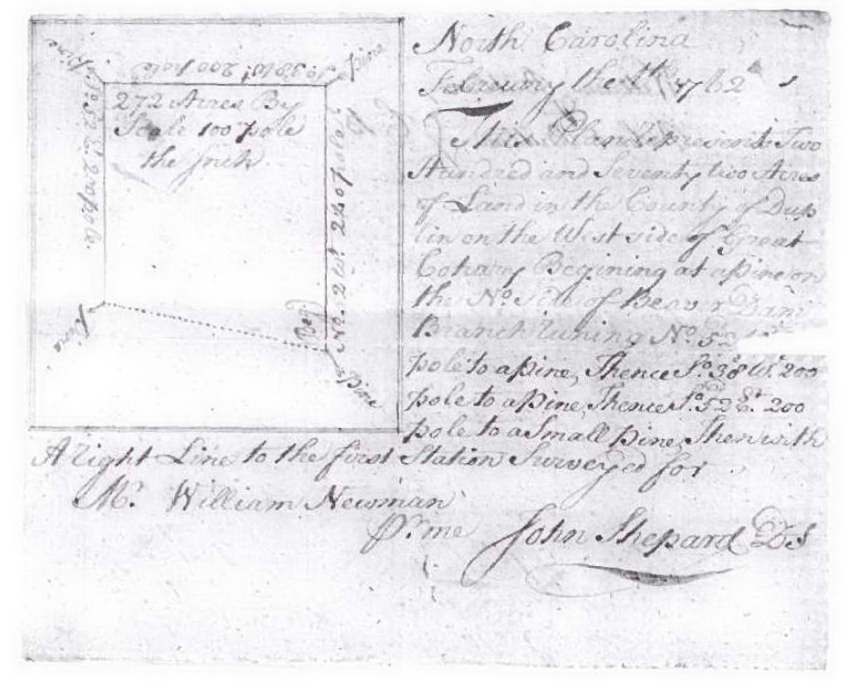 pine
So 38 Wt 200 pole
pine
272 Acres By
Scale 100 pole
the Inch
So 52 Et 200 pole
No 52 Wt 240 pole
pine
Beg
pine
North Carolina
February the th 1762
This Plan represents Two
Hundred and Seventy two Acres
of Land in the County of Dup
lin on the West side of Great
Cohary Begining at a pine on
the No side of Beaver Dam
Branch runing No 52
pole to a pine, Thence So 38 Wt 200
pole to a pine, Thence So 52 Et 200
pole to a Small pine Then with
A right Line to the first Station Surveyed for
Mr William Newman
Pr me John Shepard DS